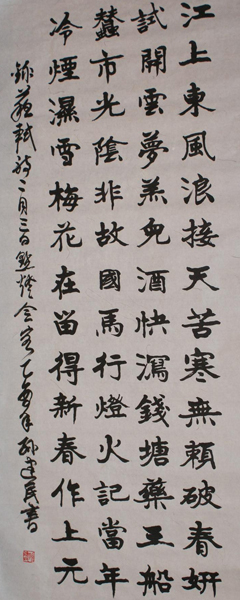 江上東風浪接天苦寒無賴破春妍
試開雲夢羔兒酒快瀉錢塘藥玉船
蠶市光陰非故國馬行燈火記當年
冷煙濕雪梅花在留得新春作上元
錄蘇軾詩二月三日點燈會客乙酉年孫建民書